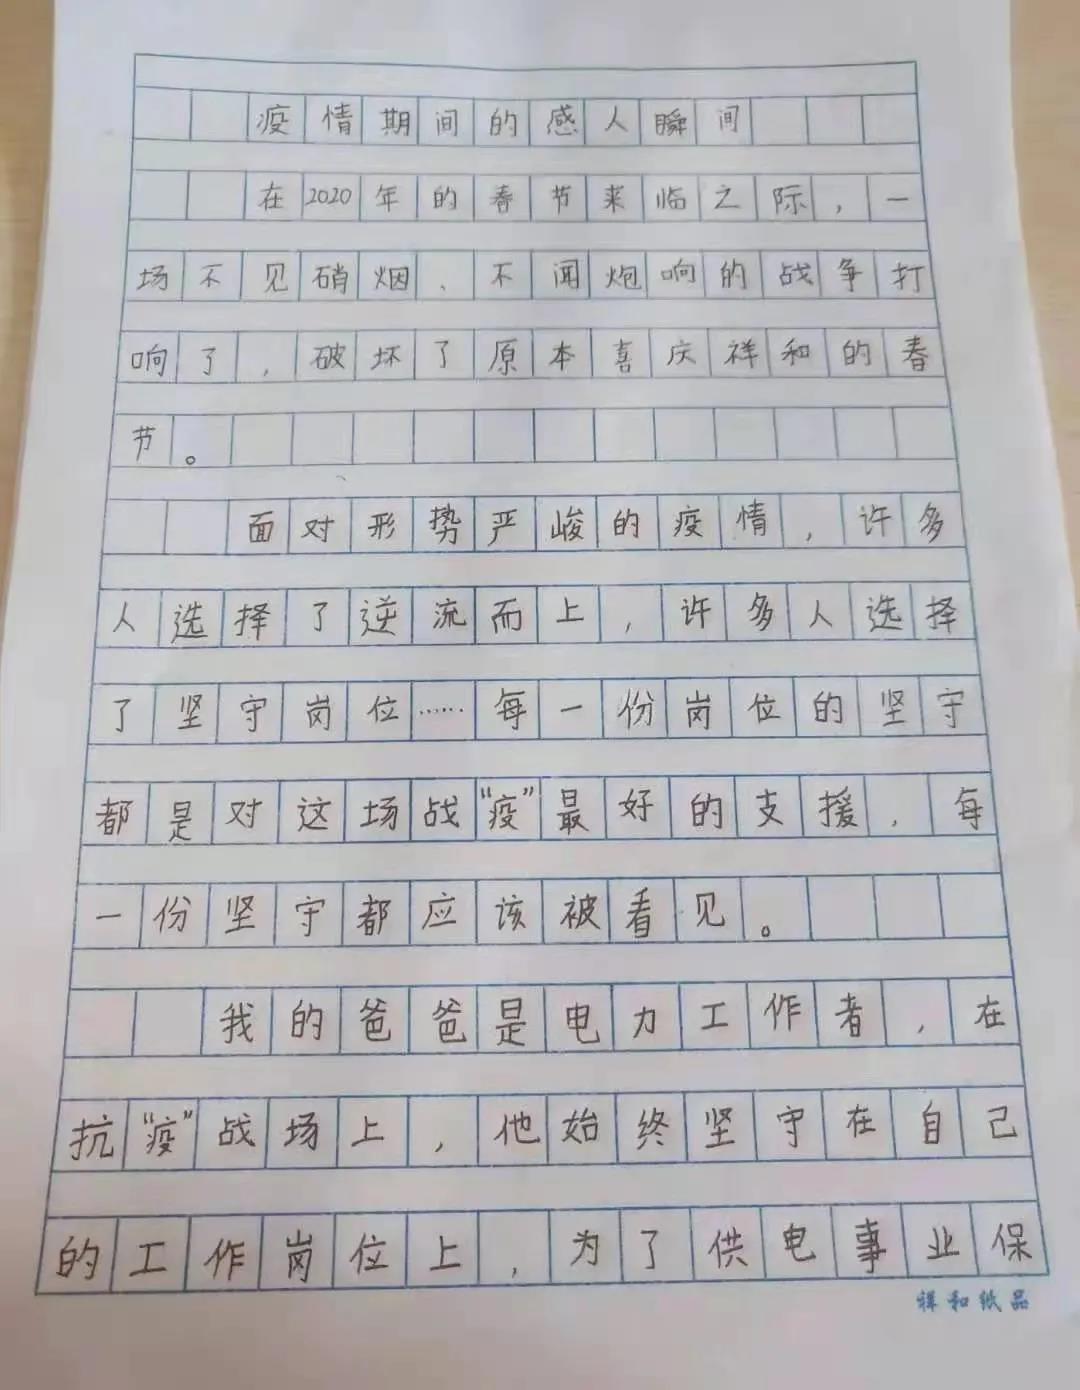 疫情期间的感人瞬间
在2020年的春节来临之际，一
场不见硝烟、不闻炮响的战争打
响了，破坏了原本喜庆祥和的春
节。
面对形势严峻的疫情，许多
人选择了逆流而上，许多人选择
了坚守岗位……每一份岗位的坚守
都是对这场战“疫”最好的支援，每
一份坚守都应该被看见。
我的爸爸是电力工作者，在
抗“疫”战场上，他始终坚守在自己
的工作岗位上，为了供电事业保
祥和纸品